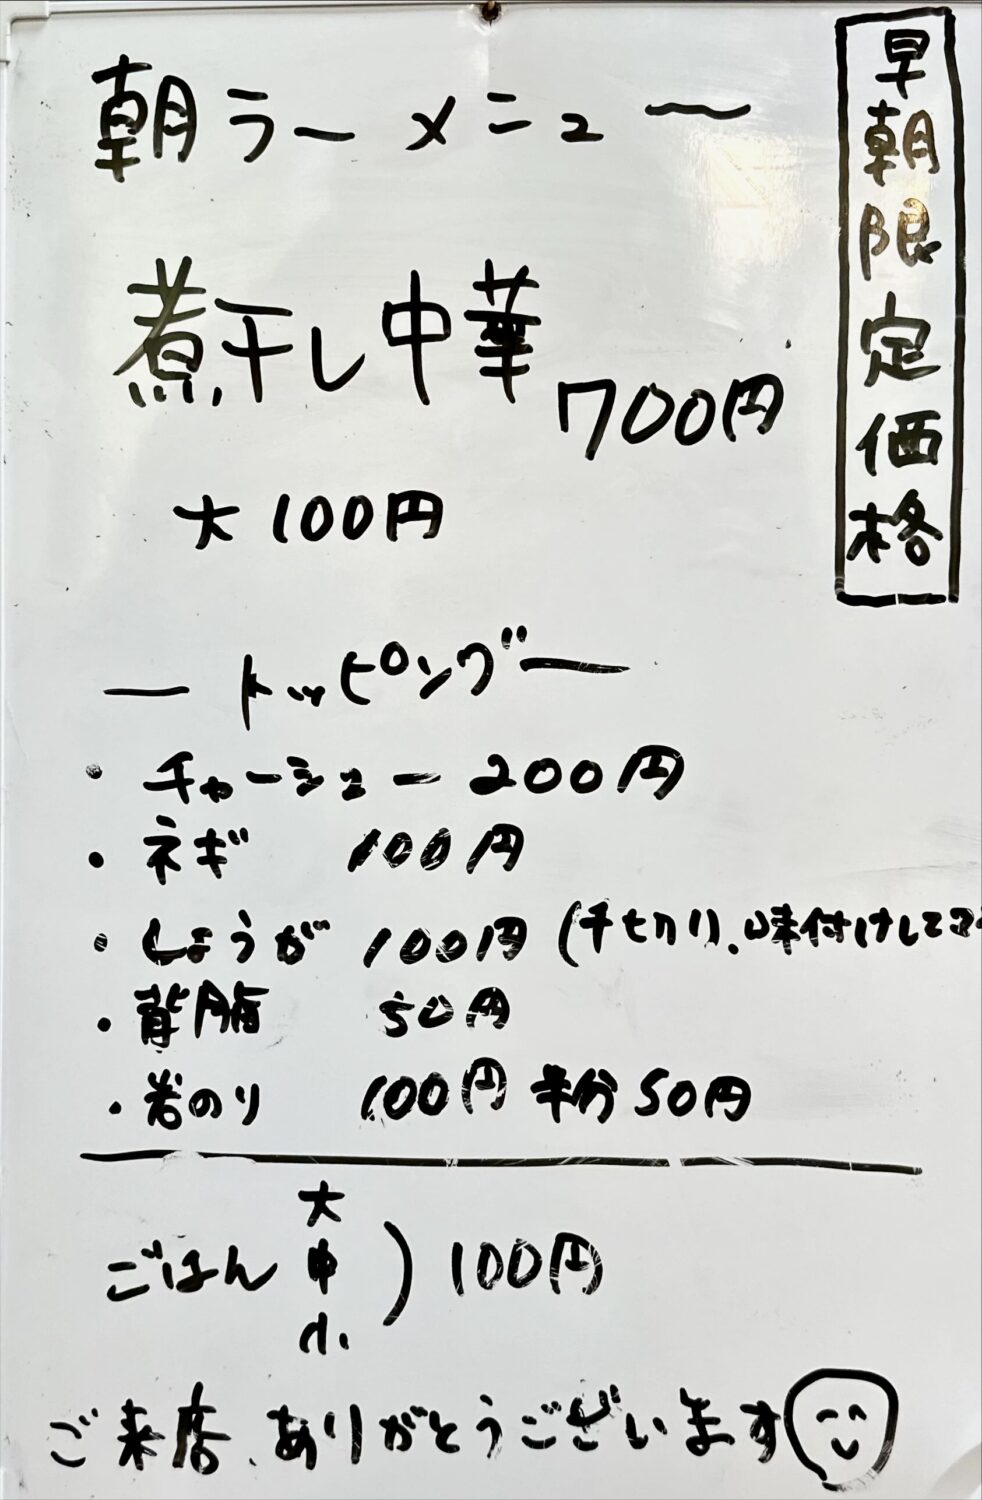 早朝限定価格
朝ラーメニュー
煮干し中華
700円
大 100円
ー トッピング ー
・チャーシュー 200円
・ネギ 100円
・しょうが 100円 (千切り、味付けしてま
・背脂 50円
・岩のり 100円 半分50円
ごはん 大 中 小 ) 100円
ご来店、ありがとうございます